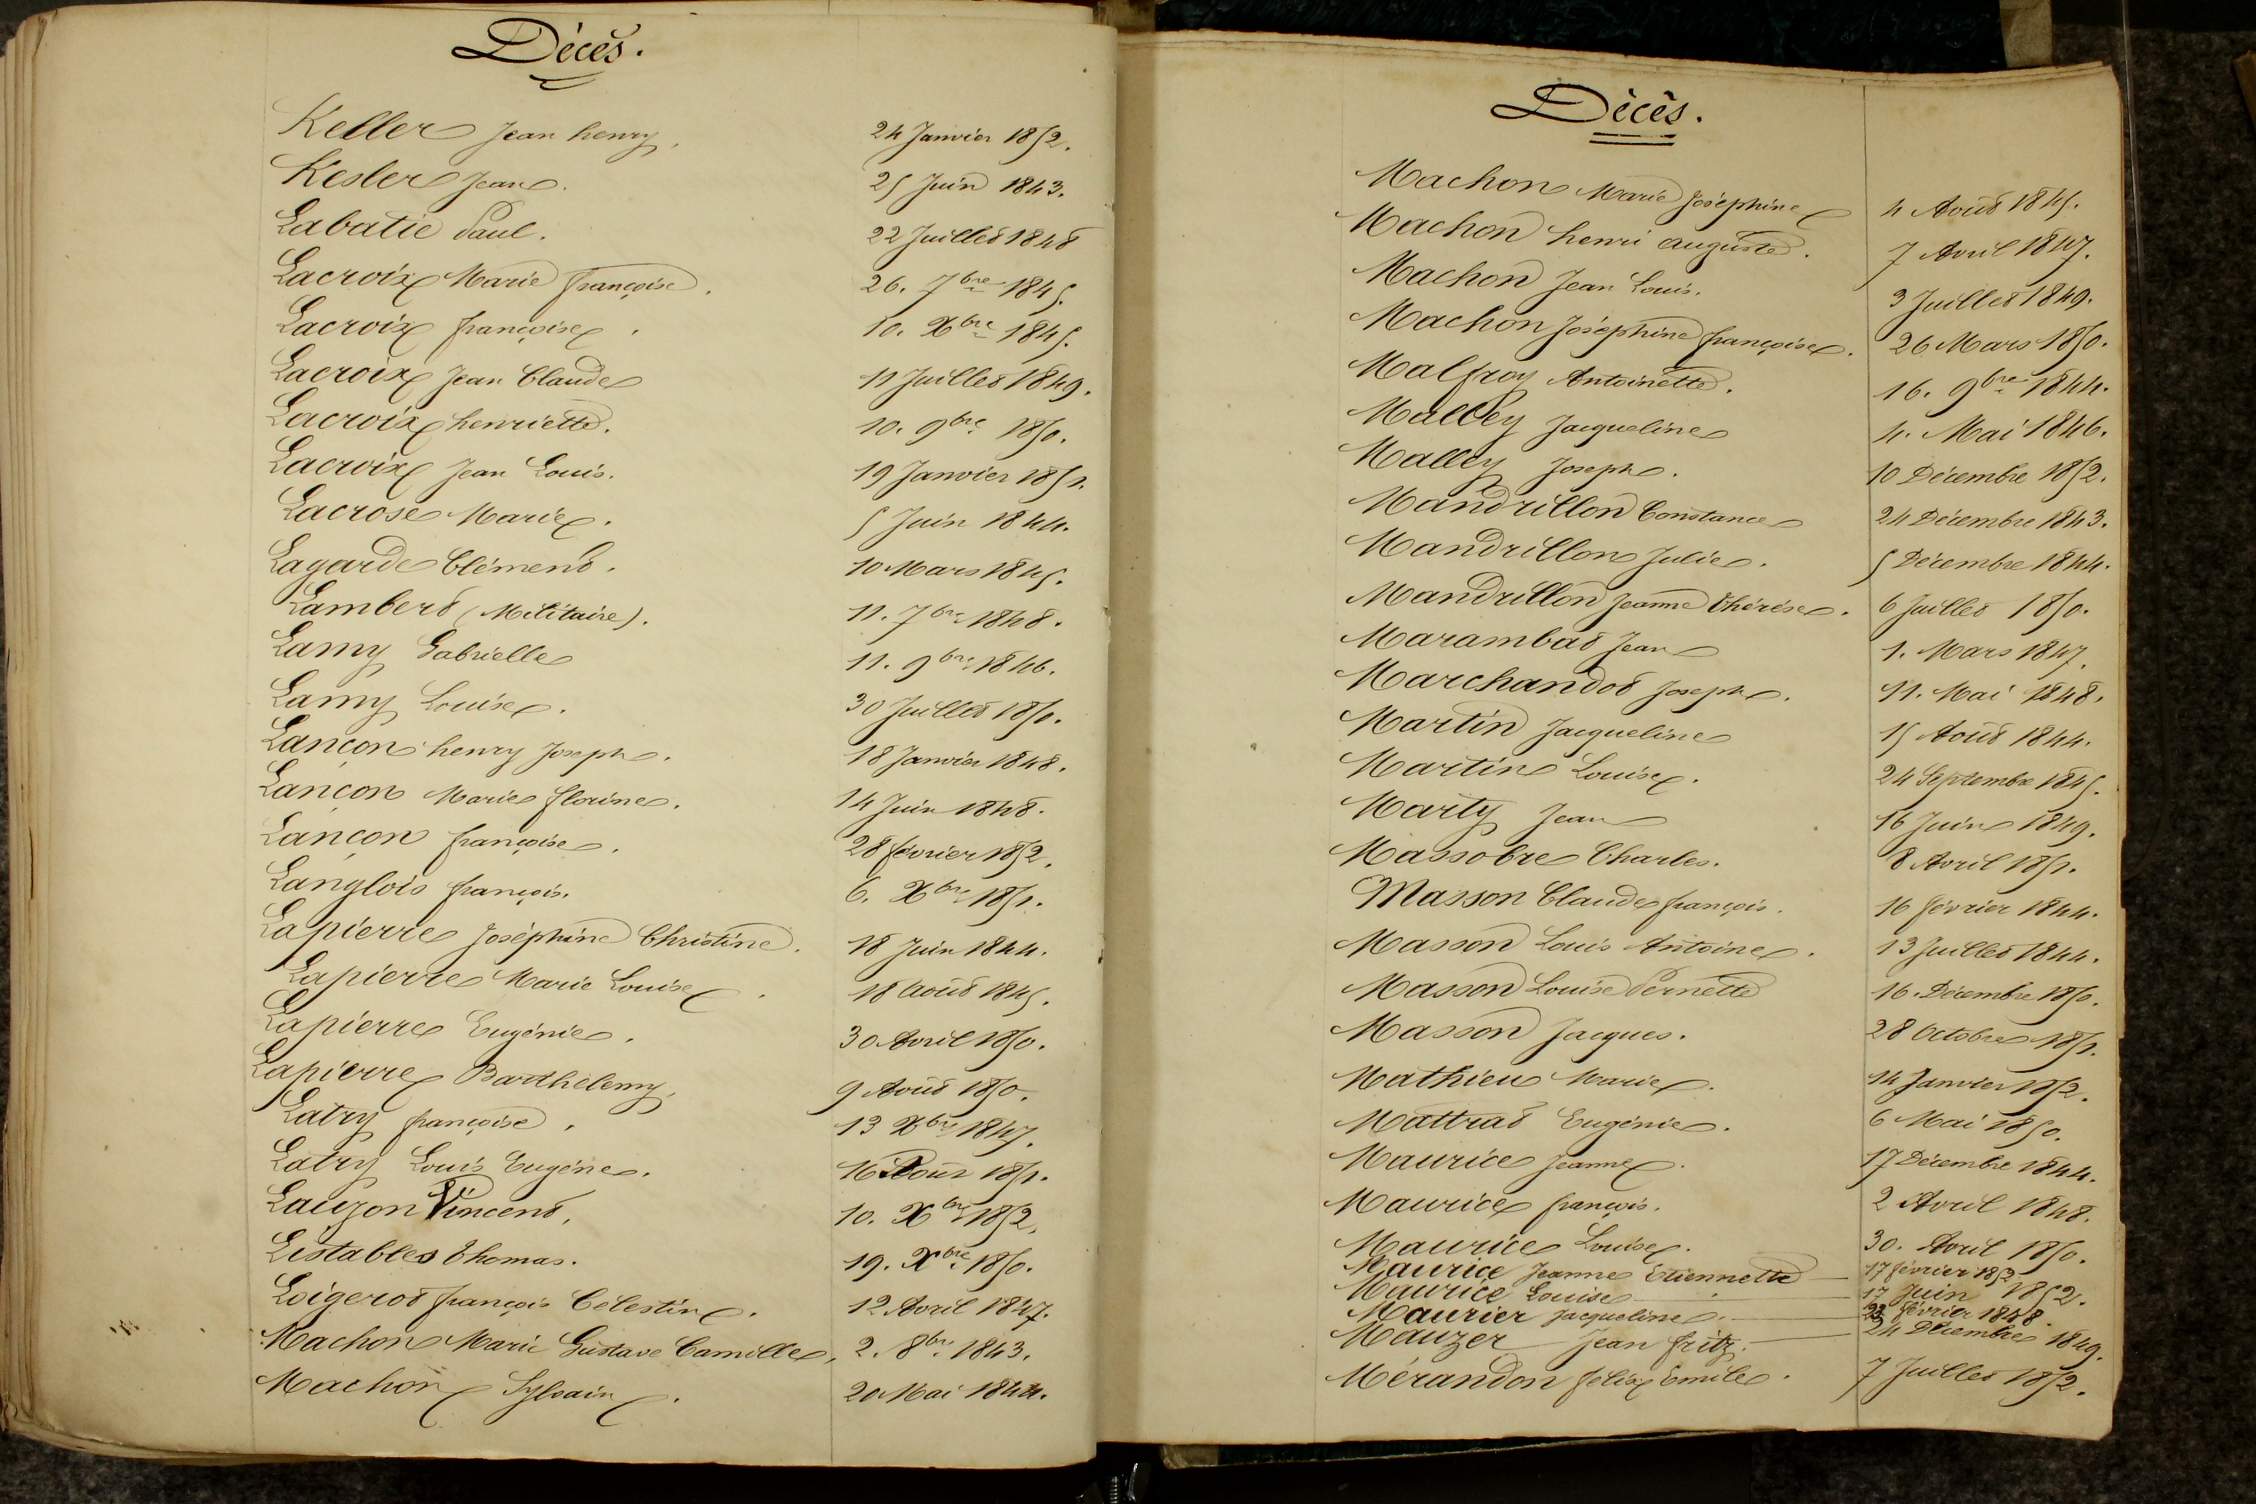 Décès.
Keller Jean henry. 24 Janvier 1852.
Kesler Jean. 25 Juin 1843.
Labatie Paul. 22 Juillet 1848
Lacroix Marie françoise. 26. 7bre 1845.
Lacroix françoise. 10. Xbre 1845.
Lacroix Jean Claude 11 Juillet 1849.
Lacroix henriette. 10. 9bre 1850.
Lacroix Jean Louis. 19 Janvier 1851.
Lacrose Marie. 5 Juin 1844.
Lagarde Clément. 10 Mars 1845.
Lambert (Militaire). 11. 7bre 1848.
Lamy Gabrielle 11. 9bre 1846.
Lamy Louise. 30 Juillet 1850.
Lançon henry Joseph. 18 Janvier 1848.
Lançon Marie florine. 14 Juin 1848.
Lançon françoise. 28 février 1852.
Langlois françois. 6. Xbre 1851.
Lapierre Joséphine Christine. 18 Juin 1844.
Lapierre Marie Louise. 18 août 1845.
Lapierre Eugénie. 30 Avril 1850.
Lapierre Barthélemy. 9 Août 1850.
Latry françoise. 13 Xbre 1847.
Latry Louis Eugène. 16 Août 1851.
Lauzon Vincent. 10. Xbre 1852.
Lestables Thomas. 19. Xbre 1850.
Loigerot françois Célestin. 12 Avril 1847.
Machon Marie Gustave Camille. 2. 8bre 1843.
Machon Sylvain. 20 Mai 1844.
Décès.
Machon Marie Joséphine 4 Août 1845.
Machon henri auguste. 7 Avril 1847.
Machon Jean Louis. 3 Juillet 1849.
Machon Joséphine françoise. 26 Mars 1850.
Malfroy Antoinette. 16. 9bre 1844.
Malley Jacqueline 4. Mai 1846.
Malley Joseph. 10 Décembre 1852.
Mandrillon Constance 24 Décembre 1843.
Mandrillon Julie. 5 Décembre 1844.
Mandrillon Jeanne Thérèse. 6 Juillet 1850.
Marambat Jean 1. Mars 1847.
Marchandot Joseph. 11. Mai 1848.
Martin Jacqueline 15 Août 1844.
Martin Louise. 24 Septembre 1845.
Marty Jean 16 Juin 1849.
Massobre Charles. 8 Avril 1851.
Masson Claude françois. 16 février 1844.
Masson Louis Antoine. 13 Juillet 1844.
Masson Louise Pernette 16. Décembre 1850.
Masson Jacques. 28 Octobre 1851.
Mathieu Marie. 14 Janvier 1852.
Mattrat Eugénie. 6 Mai 1850.
Maurice Jeanne. 17 Décembre 1844.
Maurice françois. 2 Avril 1848.
Maurice Louise. 30. Avril 1850.
Maurice Jeanne Etiennette 17 février 1852
Maurice Louise 17 Juin 1852.
Maurier Jacqueline. février 1848.
Mauzer Jean fritz. 24 Décembre 1849.
Mérandon félix Emile. 7 Juillet 1852.